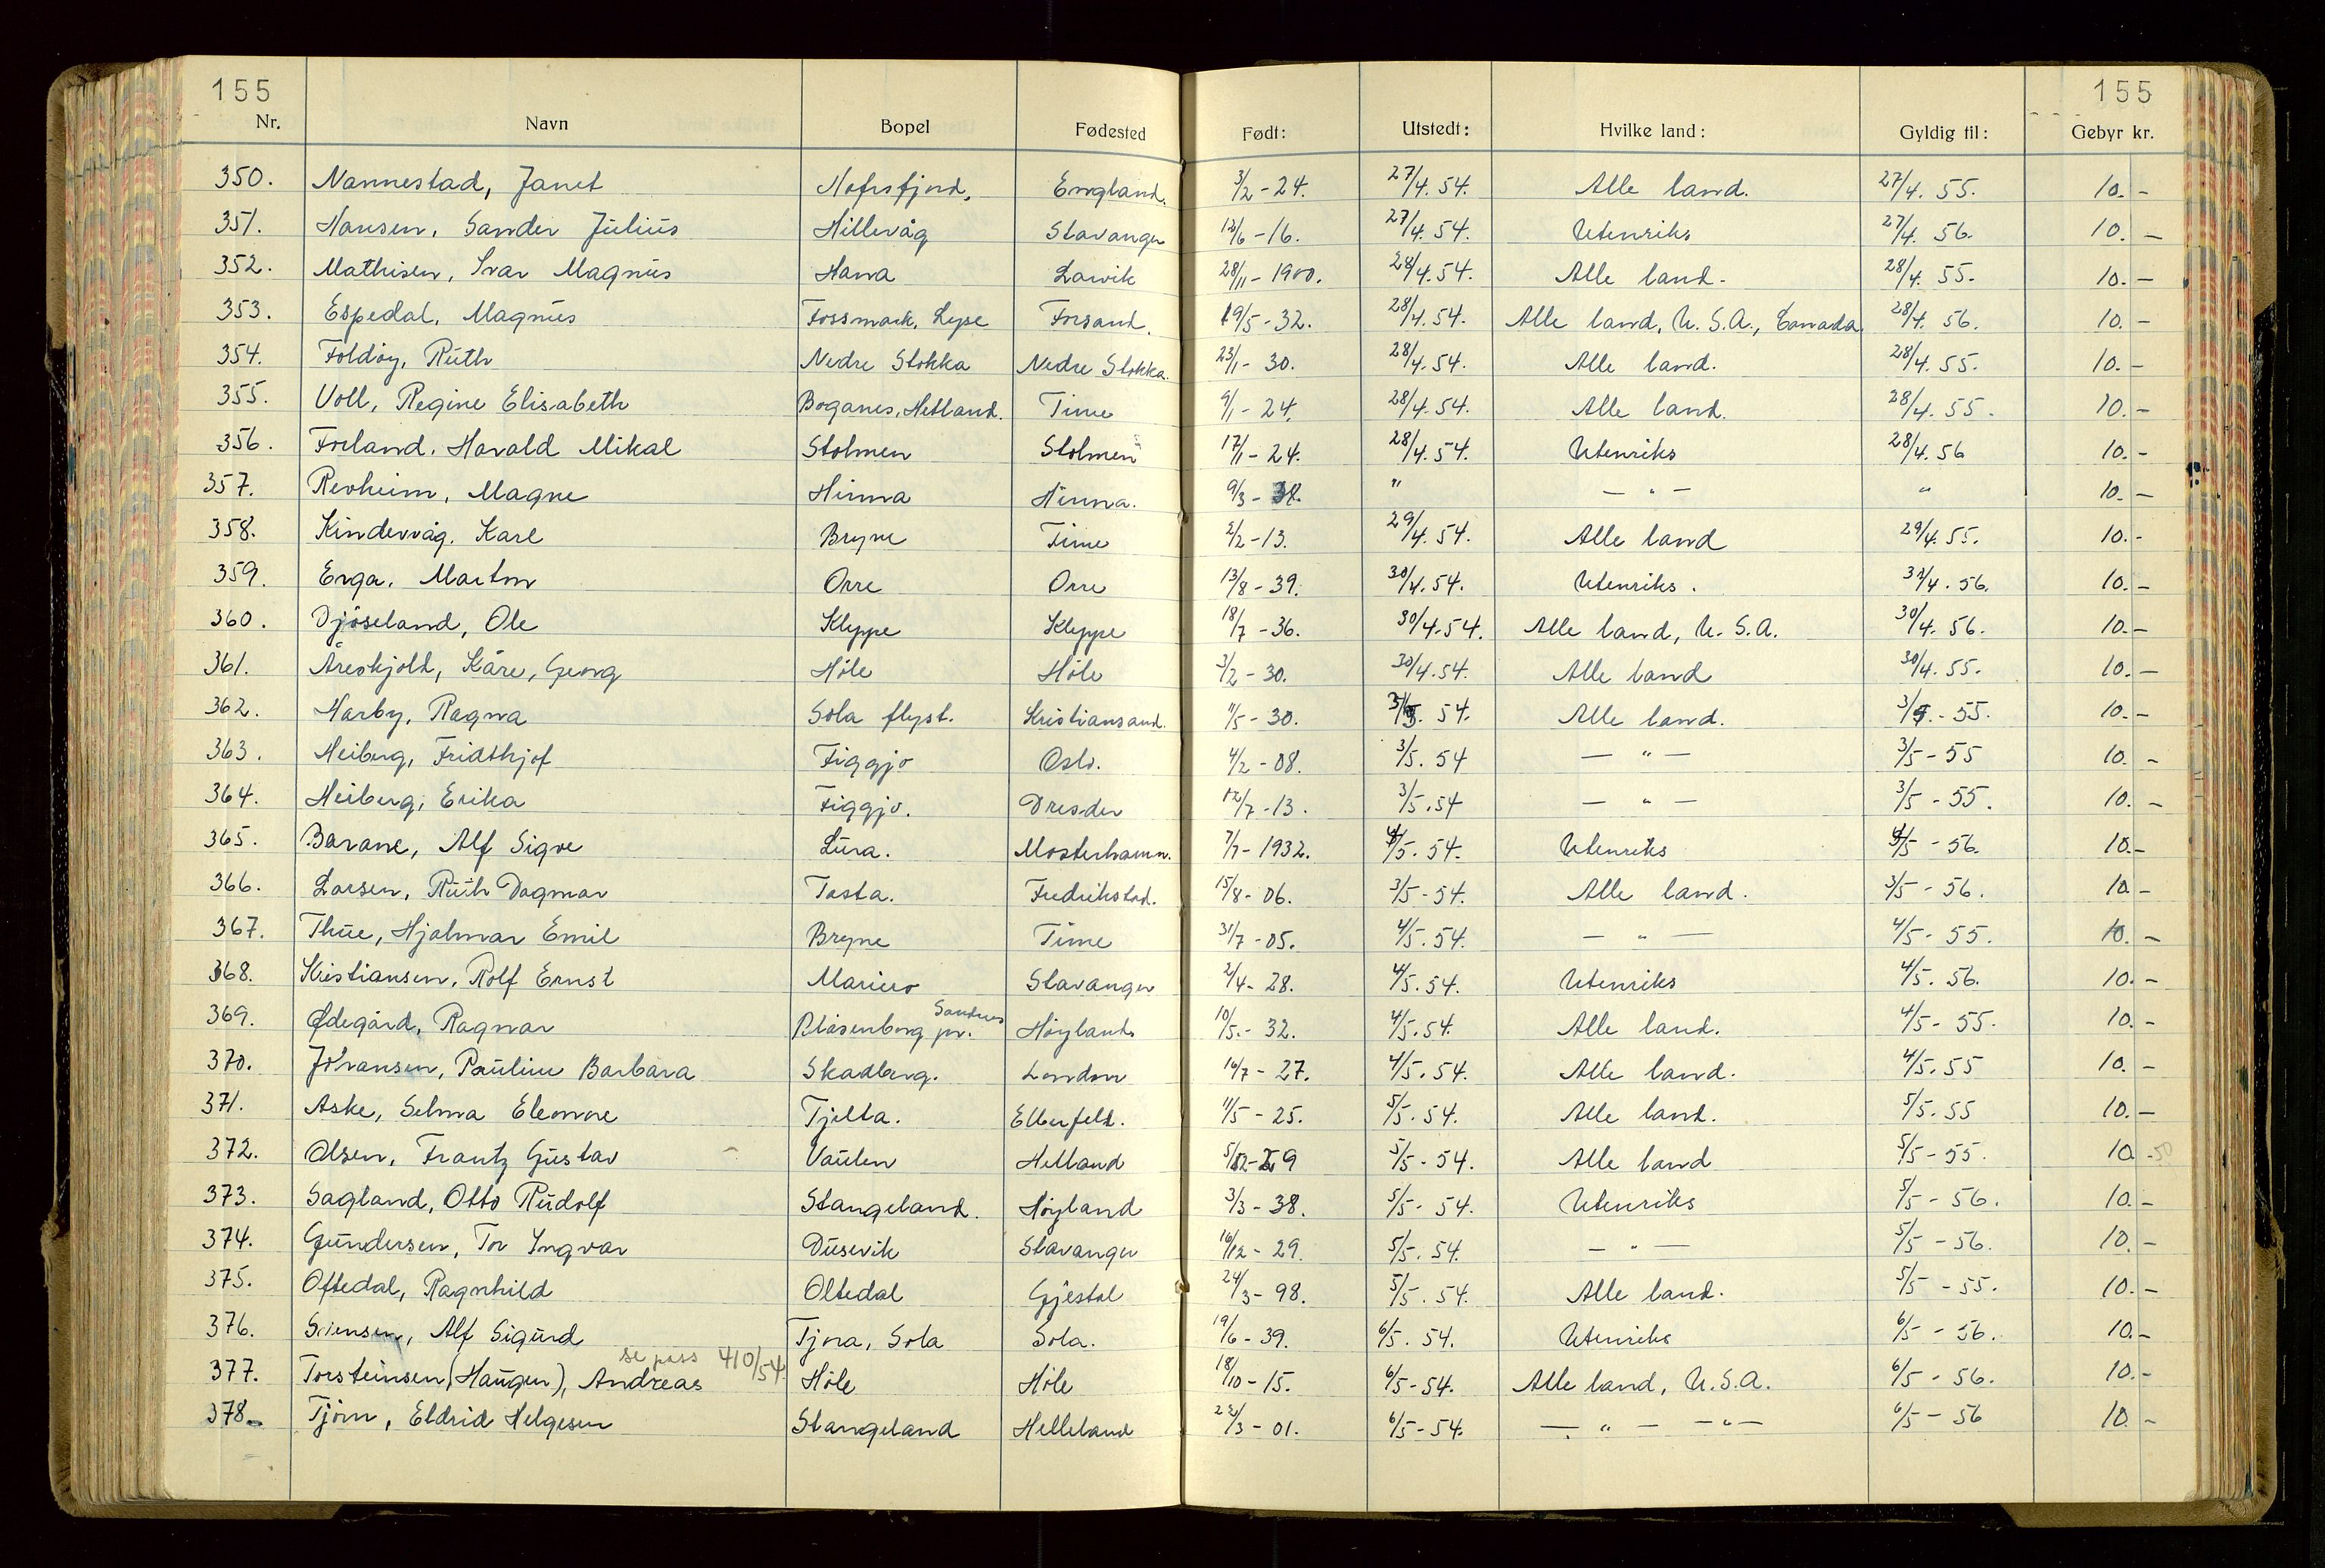 155 155
Nr. Navn Bopel Fødested Født: Utstedt: Hvilke land: Gyldig til: Gebyr kr.
350. Nannestad, Janet Hafrsfjord, England. 3/2-24. 27/4.54. Alle land. 27/4. 55. 10.-
351. Hansen, Sander Julius Hillevåg Stavanger 12/6-16. 27/4.54. Utenriks 27/4. 56. 10.-
352. Mathisen, Ivar Magnus Hana Larvik 28/11-1900. 28/4.54. Alle land. 28/4. 55. 10.-
353. Espedal, Magnus Fossmark, Lyse Forsand. 19/5-32. 28/4.54. Alle land, U.S.A., Canada. 28/4. 56. 10.-
354. Foldøy, Ruth Nedre Stokka Nedre Stokka. 23/1-30. 28/4.54. Alle land. 28/4.55. 10.-
355. Voll, Regine Elisabeth Boganes, Hetland. Time 9/1-24. 28/4.54. Alle land. 28/4.55. 10.-
356. Forland, Harald Mikal Stolmen Stolmen 17/11-24. 28/4.54. Utenriks 28/4.56 10.-
357. Revheim, Magne Hinna Hinna. 9/3-38. " - " - " 10.-
358. Kindervåg, Karl Bryne Time 2/2-13. 29/4.54. Alle land 29/4.55. 10.-
359. Erga, Martin Orre Orre 13/8-39. 30/4.54. Utenriks. 30/4.56. 10.-
360. Djøseland, Ole Kleppe Kleppe 18/7-36. 30/4.54. Alle land, U.S.A. 30/4.56. 10.-
361. Åreskjold, Kåre, Georg Høle Høle 3/2-30. 30/4.54. Alle land 30/4.55. 10.-
362. Harby, Ragna Sola flypl. Kristiansand. 11/5-30. 3/5.54. Alle land. 3/5.-55. 10.-
363. Heiberg, Fridthjof Figgjo Oslo. 4/2-08. 3/5.54 - " - 3/5-55 10.-
364. Heiberg, Erika Figgjo. Dresden 12/7-13. 3/5.54 - " - 3/5-55. 10.-
365. Barane, Alf Sigve Lura. Mosterhamn. 7/7-1932. 4/5.54. Utenriks 4/5-56. 10.-
366. Larsen, Ruth Dagmar Tasta. Fredrikstad. 15/8-06. 3/5-54. Alle land. 3/5-56. 10.-
367. Thue, Hjalmar Emil Bryne Time 31/7-05. 4/5.54. - " - 4/5-55. 10.-
368. Kristiansen, Rolf Ernst Mariero Stavanger 2/4-28. 4/5.54. Utenriks 4/5.56. 10.-
369. Ødegård, Ragnar Blåsenborg pr. Sandnes Høyland 10/5-32. 4/5.54. Alle land. 4/5-55. 10.-
370. Johansen, Pauline Barbara Skadberg. London 16/7-27. 4/5.54. Alle land. 4/5.55 10.-
371. Aske, Selma Eleonore Tjelta. Elberfeld. 11/5-25. 5/5.54. Alle land. 5/5.55 10.-
372. Olsen, Frantz Gustav Vaulen Hetland 5/12-29 5/5-54. Alle land 5/5-55. 10.-
373. Sagland, Otto Rudolf Stangeland. Høyland 3/3-38. 5/5-54. Utenriks 5/5-56. 10.-
374. Gundersen, Tor Yngvar Dusevik Stavanger 16/12-29. 5/5.54. - " - 5/5-56. 10.-
375. Oftedal, Ragnhild Oltedal Gjestal 24/3-98. 5/5.54. Alle land. 5/5-55. 10.-
376. Sørensen, Alf Sigurd Tjora, Sola Sola. 19/6-39. 6/5.54. Utenriks 6/5-56. 10.-
se pass 410/54.
377. Torsteinsen, (Haugen), Andreas Høle Høle 18/10-15. 6/5-54. Alle land, U.S.A. 6/5-56. 10.-
378. Tjörn, Eldrid Helgesen Stangeland Helleland 22/3-01. 6/5-54. - " - - " - 6/5-56 10.-